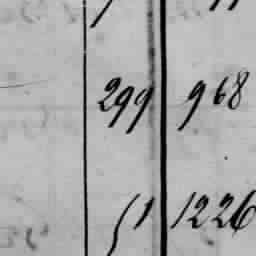 299 968
51 1226